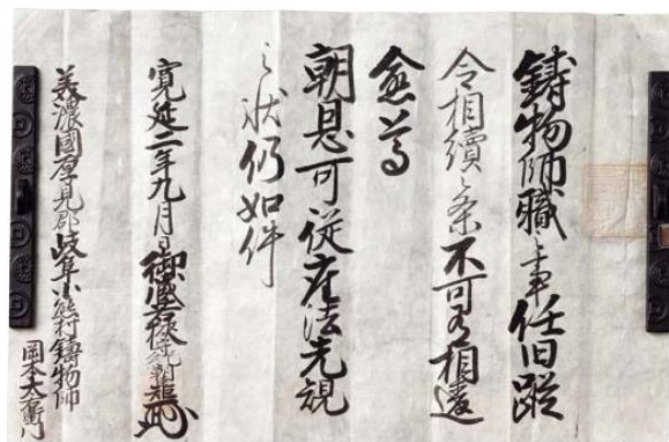 鋳物師職之事任旧蹤
令相續之条不可有相違
愈守
朝恩可従座法先規
之状仍如件
寛延二年九月日御蔵
美濃國厚見郡岐阜小熊村鋳物師
岡本太右衛門